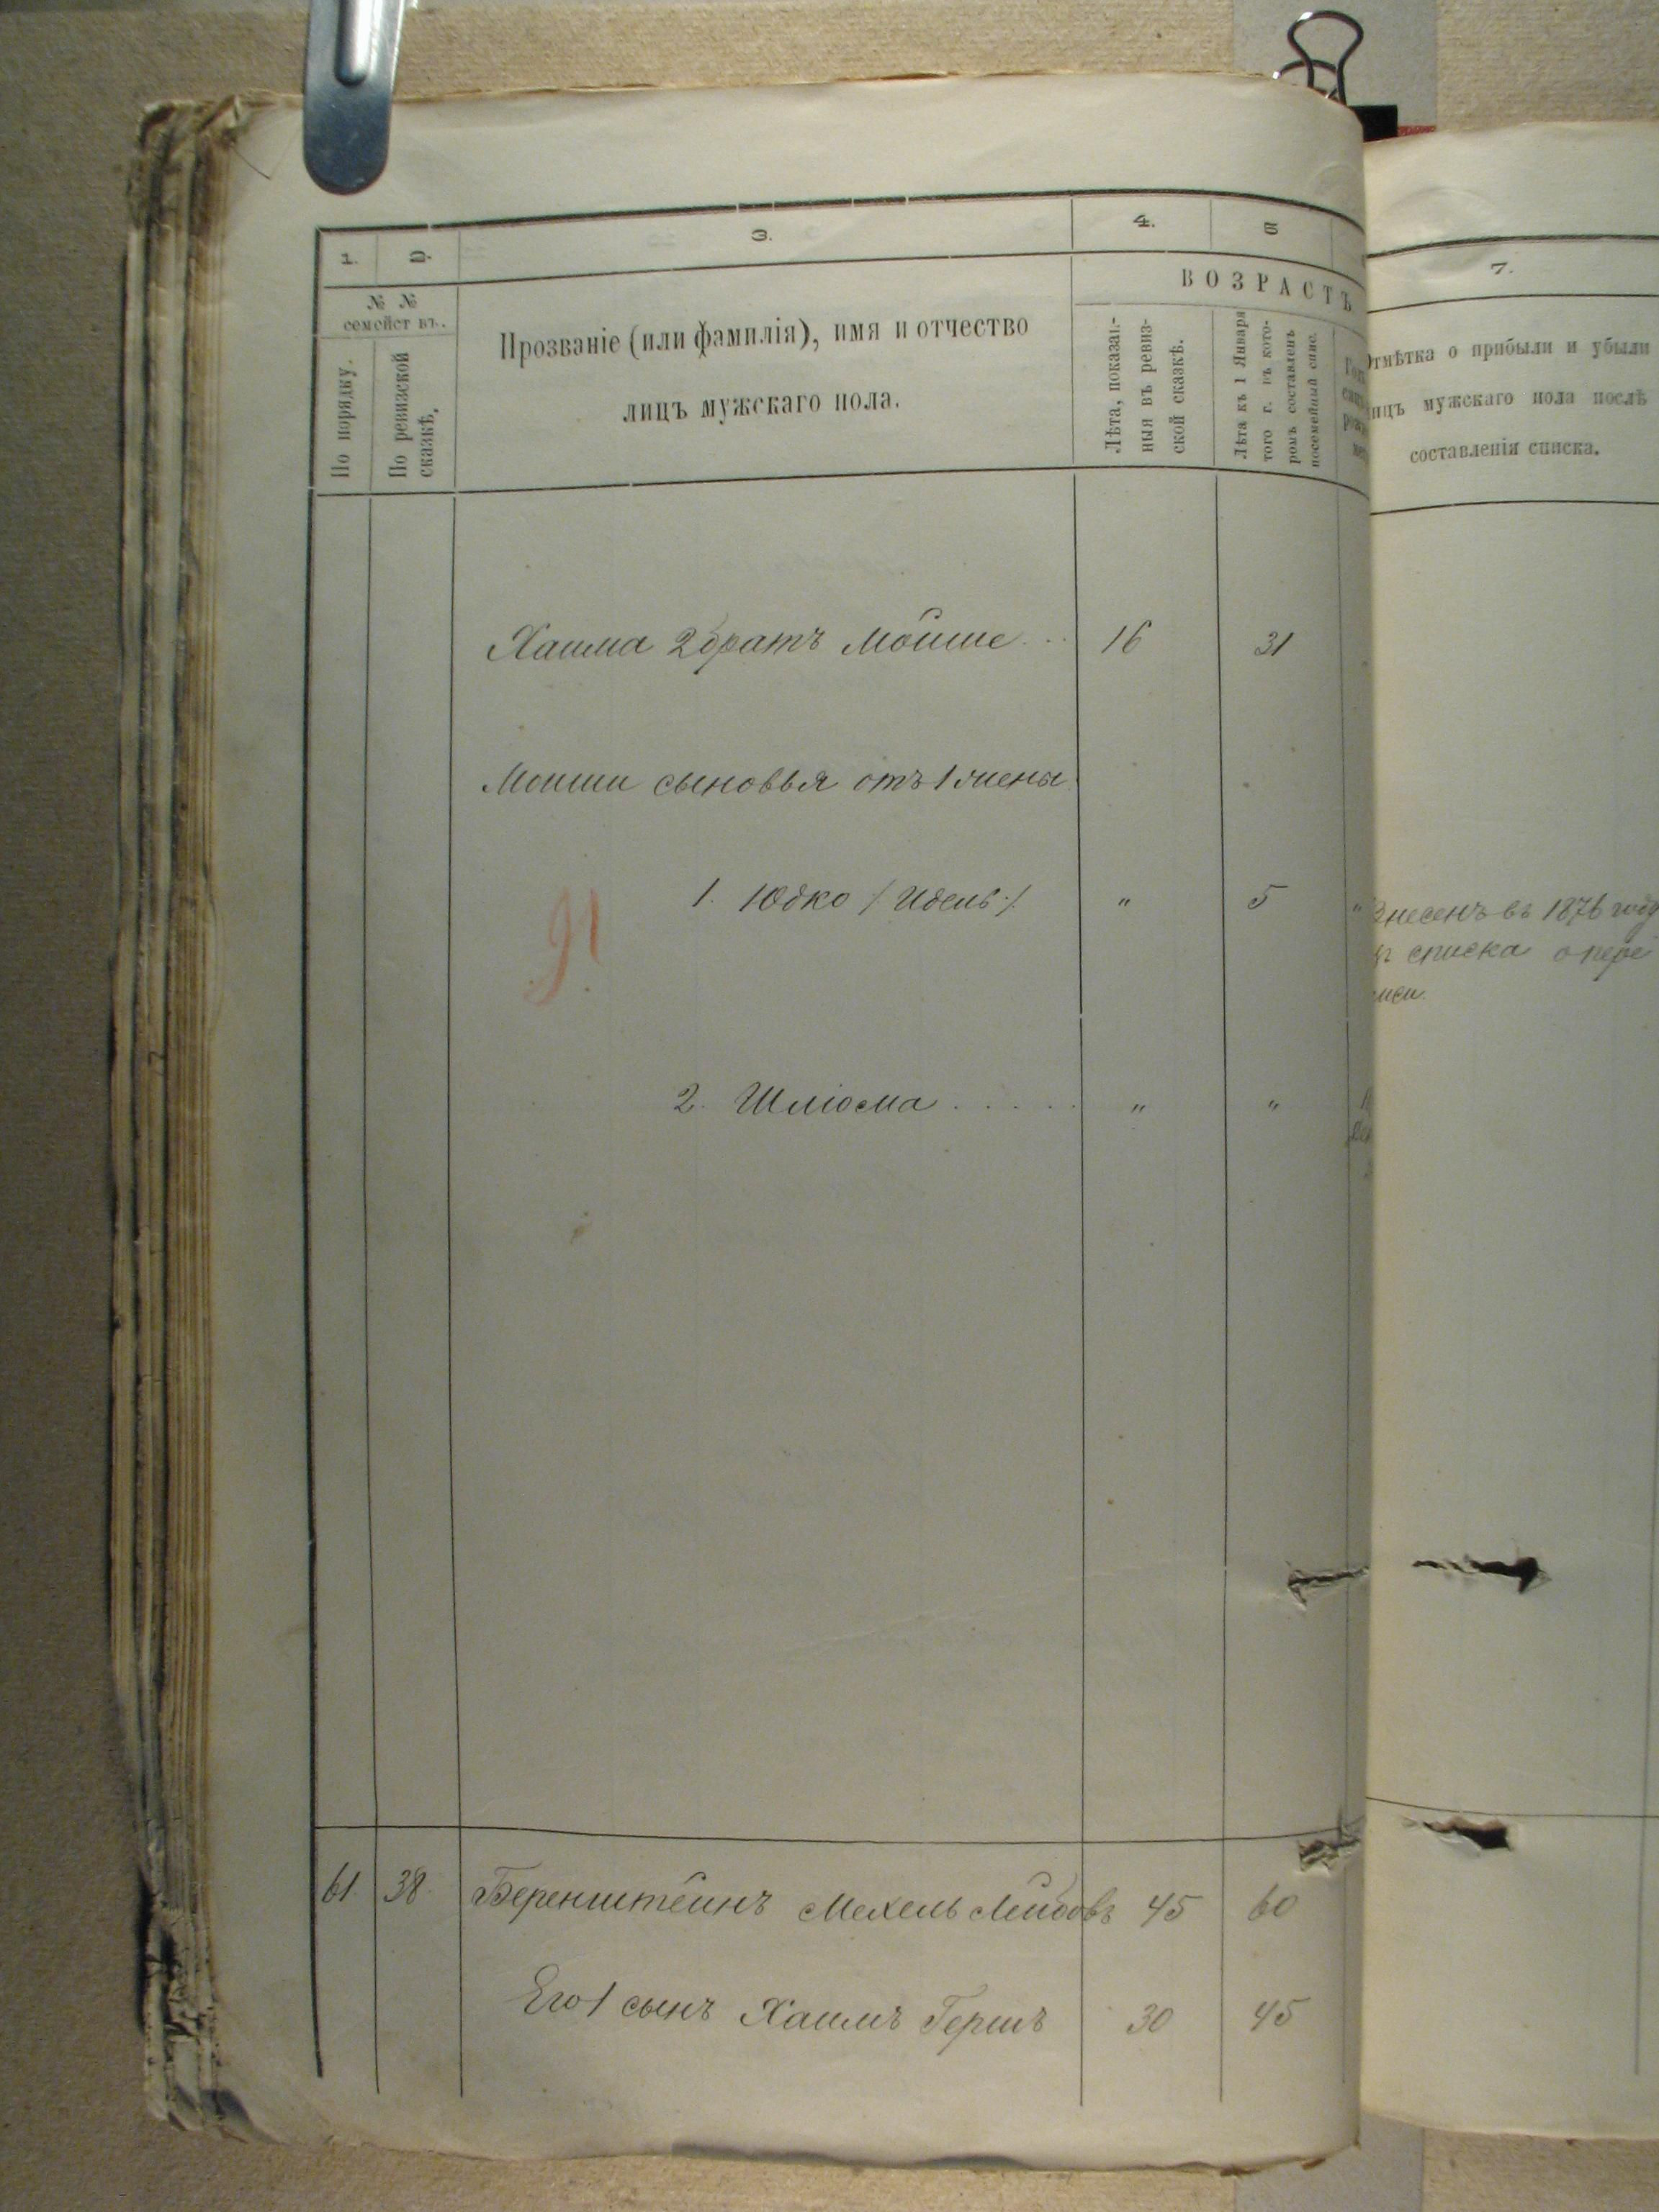 1.
2.
3.
4.
5
7.
№ №
семействъ.
По порядку.
По ревизской
сказкѣ.
Прозваніе (или фамилія), имя и отчество
лицъ мужскаго пола.
ВОЗРАСТЪ
Лѣта, показан-
ныя въ ревиз-
ской сказкѣ.
Лѣта къ 1 Января
того г. въ кото-
ромъ составленъ
посемейный спис.
Отмѣтка о прибыли и убыли
лицъ мужскаго пола послѣ
составленія списка.
Хаима 2 братъ Мойше 16 31
Мошки сыновья отъ 1 жены
1. Юдко /Идель/. " 5 "
Внесенъ въ 1876 году
списка о пере
2. Шліома " "
61. 38. Беренштейнъ Мехель Лейбовъ 45 60
Его 1 сынъ Хаимъ Гершъ 30 45